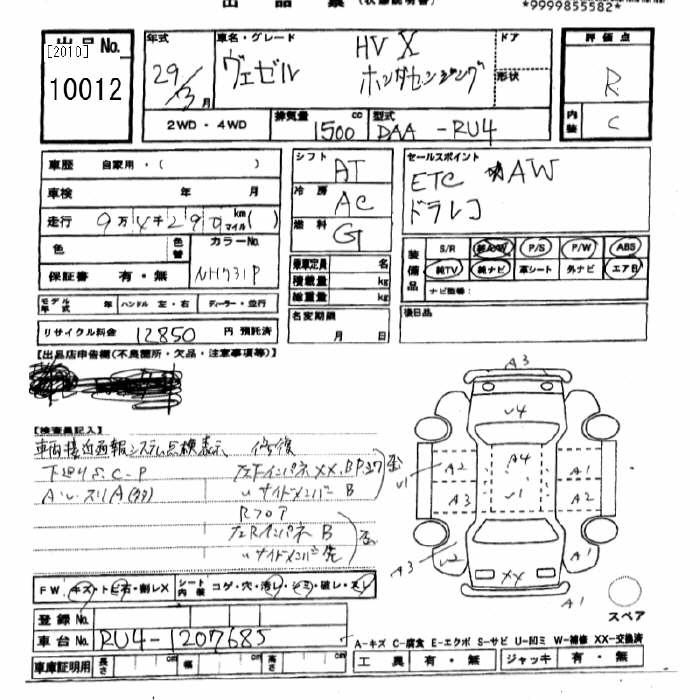 出品票(状態説明書)
*9999855582*
出品No.
[2010]
10012
年式 29/3月
車名・グレード ヴェゼル HV X ホンダセンシング
ドア
形状
評価点 R
内装 C
2WD・4WD
排気量 1500 cc
型式 DAA-RU4
車歴 自家用・( )
車検 年 月
走行 9万4千290 km マイル( )
色 色替
カラーNo. NH731P
保証書 有・無
モデル年式 年 ハンドル 左・右 ディーラー・並行
リサイクル料金 12850 円 預託済
シフト AT
冷房 AC
燃料 G
乗車定員 名
積載量 kg
総重量 kg
名変期限 月 日
セールスポイント
ETC AW
ドラレコ
装備品 S/R 純AW P/S P/W ABS
純TV 純ナビ 革シート 外ナビ エアB
ナビ画像:
後日品
【出品店申告欄(不良箇所・欠品・注意事項等)】
【検査員記入】
車両接近通報システム点検表示 修復
下廻りS.C-P
左Fインパネ XX.BPヌケ 歪
〃サイドメンバー B
Rフロア
左Rインパネ B
〃サイドメンバー先
A3
U4
A2
A4
A1
U1
A3
U1
A2
A3
U2
XX
A1
A1
スペア
FW キズ・トビ石・削レX
シート内装 コゲ・穴・汚レ・シミ・破レ・スレ
登録No.
車台No. RU4-1207685
車庫証明用 長さ cm 幅 cm 高さ cm
A-キズ C-腐食 E-エクボ S-サビ U-凹ミ W-補修 XX-交換済
工具 有・無 ジャッキ 有・無